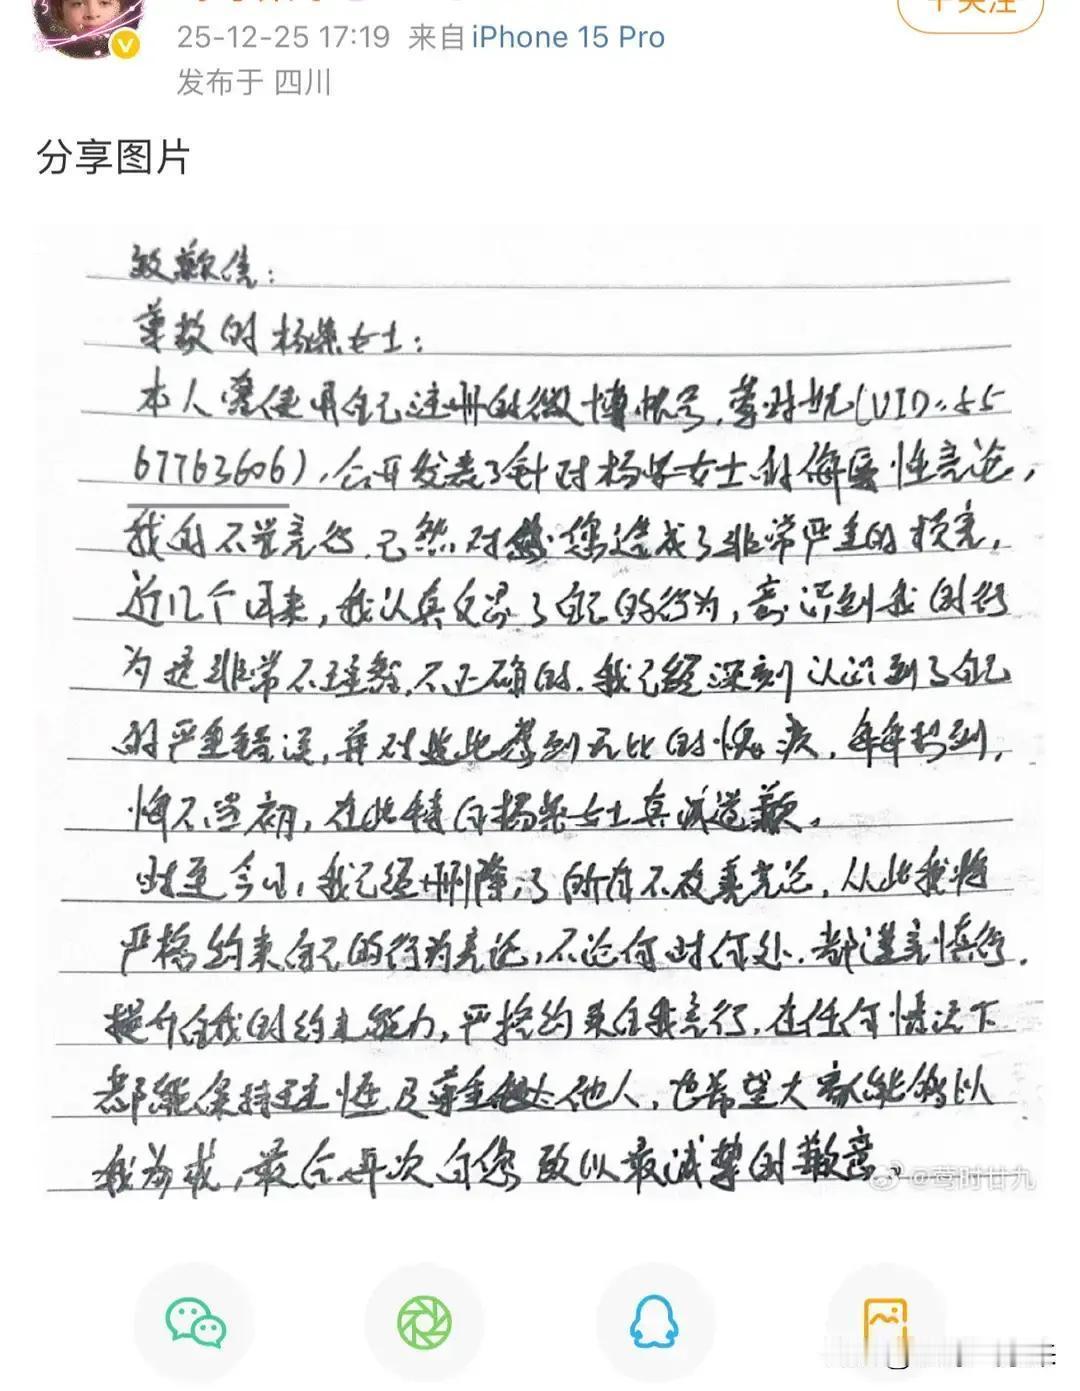 25-12-25 17:19 来自 iPhone 15 Pro
发布于 四川
分享图片
致歉信：
尊敬的杨紫女士：
本人曾使用自己注册的微博帐号，莺时廿九(UID:55
67763606)，公开发表了针对杨紫女士的侮辱性言论，
我的不当言行，已然对您造成了非常严重的损害，
近几个月来，我认真反思了自己的行为，意识到我的行
为是非常不理智，不正确的，我已经深刻认识到了自己
的严重错误，并对此感到无比的愧疚，每每想到，
悔不当初，在此特向杨紫女士真诚道歉。
时至今日，我已经删除了所有不友善言论，从此我将
严格约束自己的行为言论，不论何时何处，都谨言慎行，
提升自我的约束能力，严格约束自我言行，在任何情况下
都能保持理性及尊重他人，也希望大家能够以
我为戒，最后再次向您致以最诚挚的歉意。
@莺时廿九